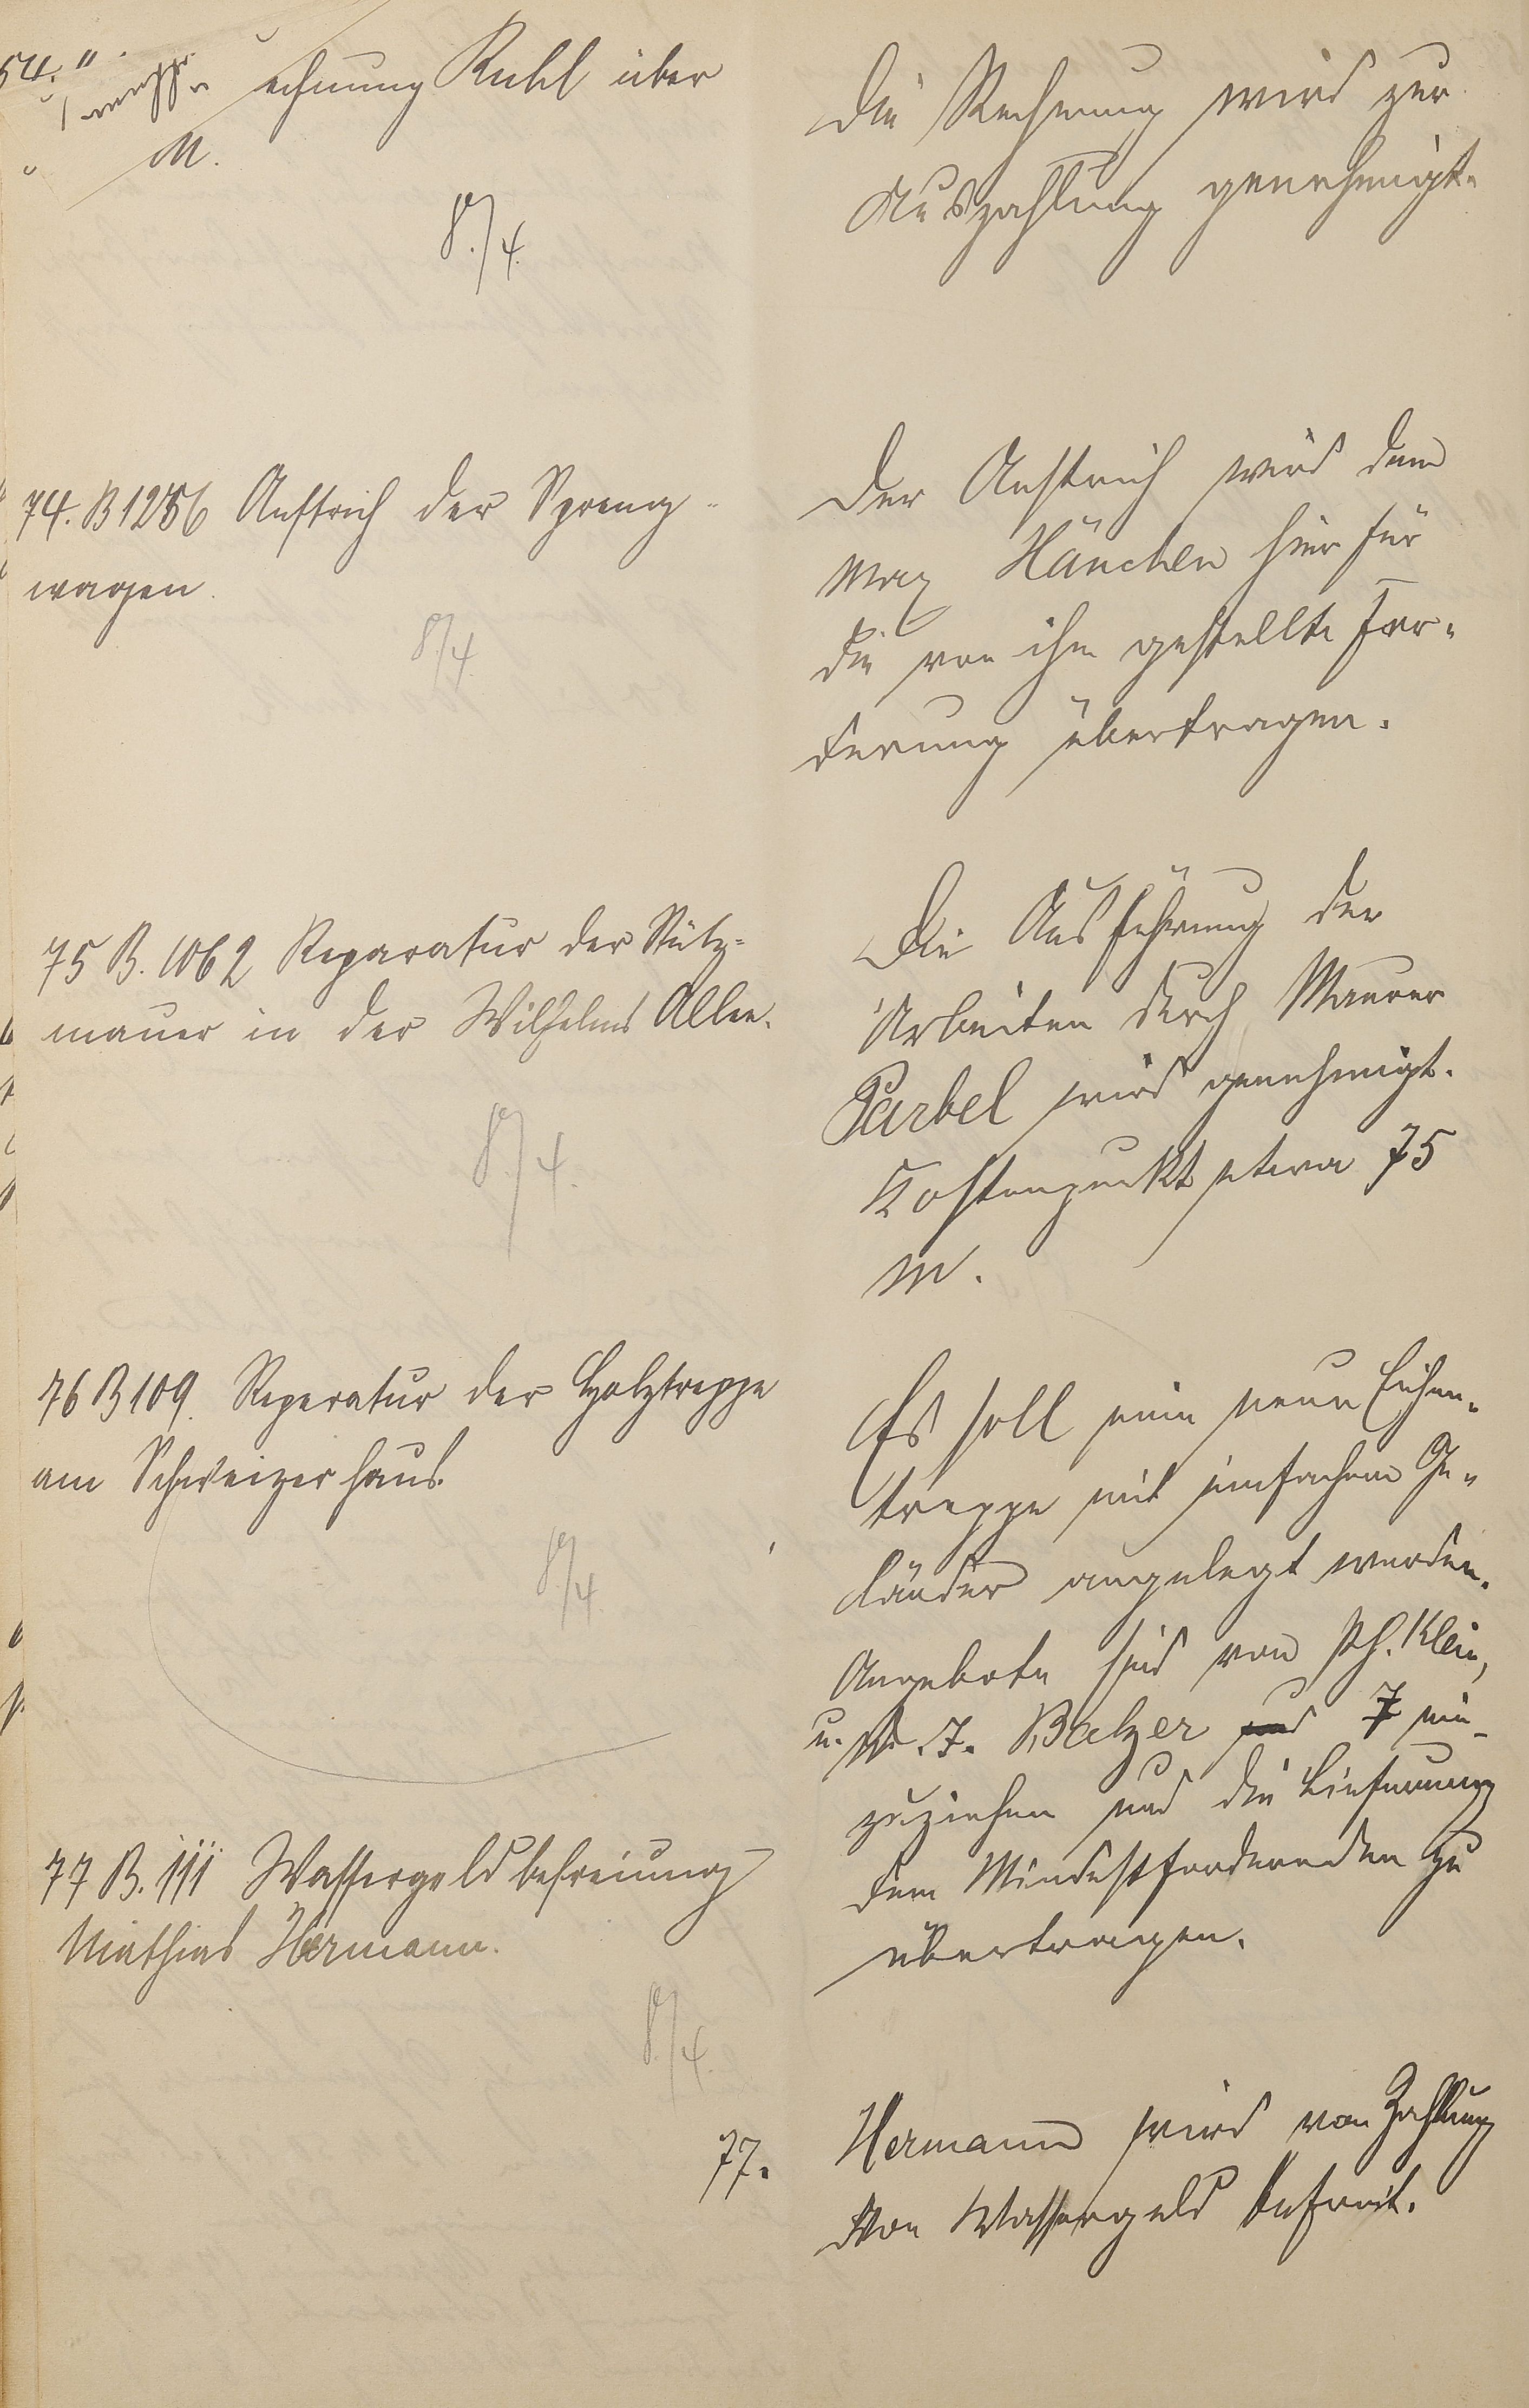 echnung Ruhl über
M.
8./4.
Die Rechnung wird zur
Auszahlung genehmigt.
74. B 1256 Anstrich der Spreng-
wagen.
8/4.
Der Anstrich wird dem
Max Hänchen hier für
die von ihm gestellte For-
derung übertragen.
75 B. 1062 Reparatur der Stütz-
mauer in der Wilhelms Allee.
8./4.
Die Ausführung der
Arbeiten durch Maurer
Parbel wird genehmigt.
Kostenpunkt etwa 75
M.
76 B 109. Reperatur der Holztreppe
am Schweizerhaus.
8./4.
Es soll eine neue Eichen-
treppe mit einfachem Ge-
länder angelegt werden.
Angebote sind von Ph. Klein,
u. J. Balzer und ein-
zuziehen und die Lieferung
dem Mindestfordernden zu
übertragen.
77 B. 111 Wassergeldbefreiung
Mathias Hermann.
8./4.
77.
Hermann wird von Zahlung
von Wassergeld befreit.